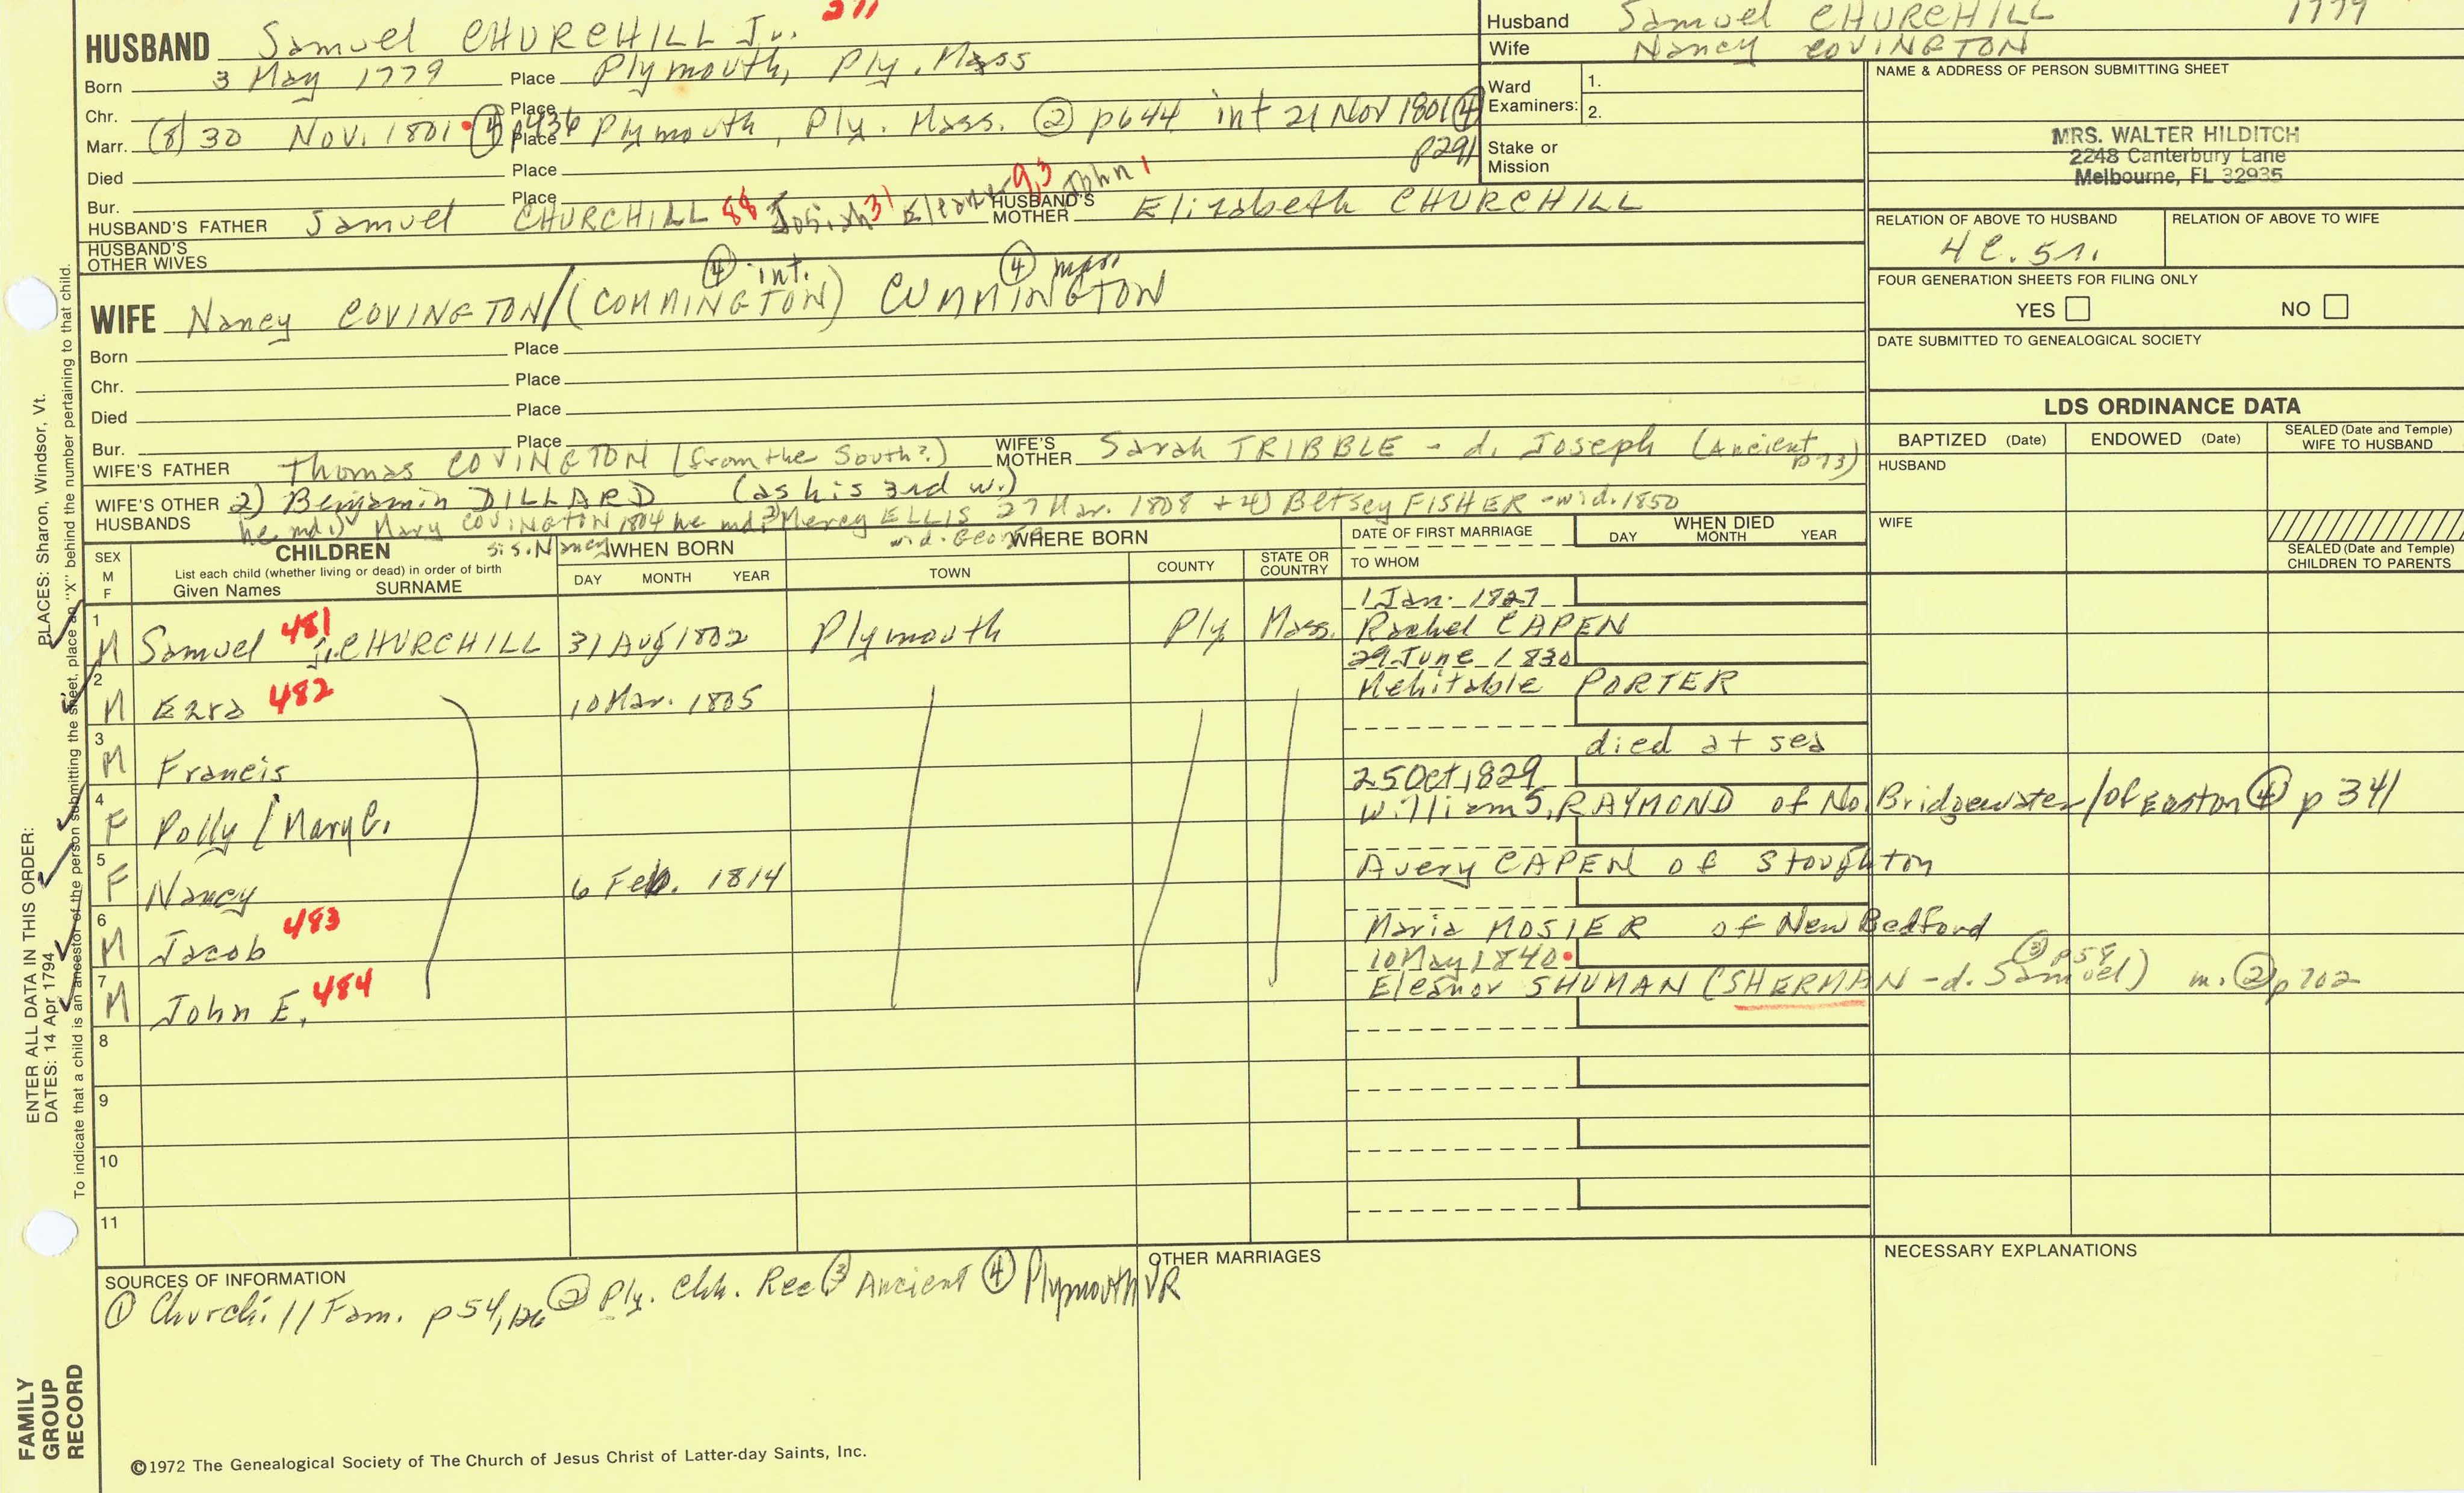 HUSBAND Samuel CHURCHILL Jr.
Born 3 May 1779 Place Plymouth, Ply. Mass
Chr. Place
Marr. (8) 30 Nov. 1801 ④ p436 Place Plymouth, Ply. Mass. ② p644 int 21 Nov 1801 ④ p291
Died Place
Bur. Place
HUSBAND'S FATHER Samuel CHURCHILL 88 Josiah 31 Eleazer 93 John 1 HUSBAND'S MOTHER Elizabeth CHURCHILL
HUSBAND'S OTHER WIVES
④ int. ④ marr
WIFE Nancy COVINGTON/(COMMINGTON) CUMMINGTON
Born Place
Chr. Place
Died Place
Bur. Place
WIFE'S FATHER Thomas COVINGTON (from the South?) WIFE'S MOTHER Sarah TRIBBLE - d. Joseph (Ancient p 73)
WIFE'S OTHER HUSBANDS 2) Benjamin DILLARD (as his 3rd w.)
he md.1) Mary COVINGTON 1804 he md.2) Mercy ELLIS 27 Mar. 1808 + 4) Betsey FISHER - wid. 1850
sis. Nancy wid. George
Husband Samuel CHURCHILL 1779
Wife Nancy COVINGTON
Ward Examiners: 1.
2.
Stake or Mission
NAME & ADDRESS OF PERSON SUBMITTING SHEET
MRS. WALTER HILDITCH
2248 Canterbury Lane
Melbourne, FL 32935
RELATION OF ABOVE TO HUSBAND RELATION OF ABOVE TO WIFE
4 C. 5r.
FOUR GENERATION SHEETS FOR FILING ONLY
YES NO
DATE SUBMITTED TO GENEALOGICAL SOCIETY
LDS ORDINANCE DATA
BAPTIZED (Date) ENDOWED (Date) SEALED (Date and Temple) WIFE TO HUSBAND
HUSBAND
WIFE
SEALED (Date and Temple) CHILDREN TO PARENTS
SEX M F
CHILDREN
List each child (whether living or dead) in order of birth
Given Names SURNAME
WHEN BORN
DAY MONTH YEAR
WHERE BORN
TOWN COUNTY STATE OR COUNTRY
DATE OF FIRST MARRIAGE
TO WHOM
WHEN DIED
DAY MONTH YEAR
1 M Samuel 481 Jr. CHURCHILL 31 Aug 1802 Plymouth Ply Mass. 1 Jan. 1827 Rachel CAPEN
2 M Ezra 482 10 Mar. 1805 29 June 1830 Mehitable PORTER
3 M Francis died at sea
4 F Polly / Mary C. 25 Oct 1829 William S. RAYMOND of No. Bridgewater/of Easton ④ p 341
5 F Nancy 6 Feb. 1814 Avery CAPEN of Stoughton
6 M Jacob 483 Maria MOSIER of New Bedford
7 M John E. 484 10 May 1840 Eleanor SHUMAN (SHERMAN - d. Samuel) ③ p59 m. ② p702
8
9
10
11
SOURCES OF INFORMATION
① Churchill Fam. p 54, 126 ② Ply. Chh. Rec ③ Ancient ④ Plymouth VR
OTHER MARRIAGES
NECESSARY EXPLANATIONS
©1972 The Genealogical Society of The Church of Jesus Christ of Latter-day Saints, Inc.
FAMILY GROUP RECORD
ENTER ALL DATA IN THIS ORDER:
DATES: 14 Apr 1794
PLACES: Sharon, Windsor, Vt.
To indicate that a child is an ancestor of the person submitting the sheet, place an "X" behind the number pertaining to that child.